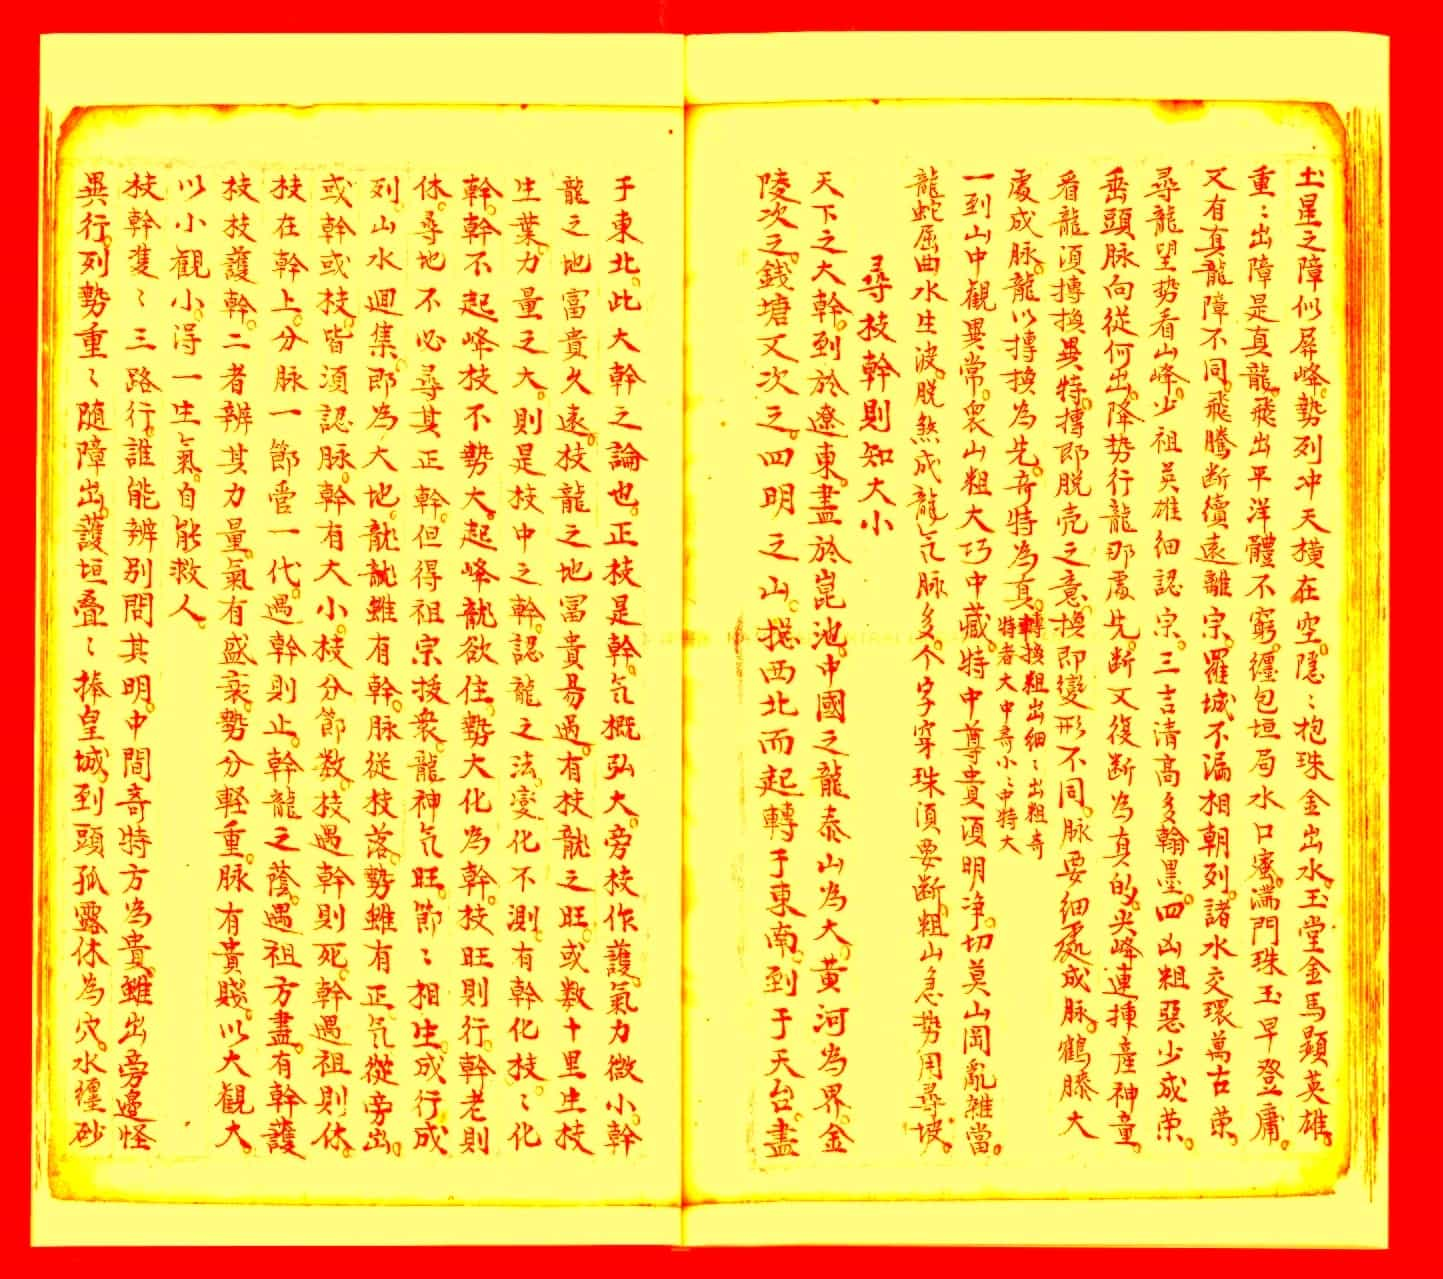 土星之障似屏峰。勢列冲天橫在空。隱〻抱珠金出水。玉堂金馬顯英雄。
重〻出障是真龍。飛出平洋體不窮。纏包垣局水口蜜。滿門珠玉早登庸。
又有真龍障不同。飛騰断續遠離宗。羅城不漏相朝列。諸水交環萬古荣。
尋龍望勢看山峰。少祖英雄細認宗。三吉清高多翰墨。四凶粗惡少成荣。
垂頭脉向從何出。降勢行龍那處先。断又復断为真的。尖峰連揷産神童。
看龍湏摶換異特。摶即脱壳之意。換即變形不同。脉要細處成脉。鶴膝大
處成脉。龍以摶換為先。奇特為真。
轉換粗出細〻出粗奇
特者大中奇小〻中特大
一到山中觀異常。衆山粗大巧中藏。特中尊貴湏明净。切莫山岡亂雜當。
龍蛇屈曲水生波。脱煞成龍气脉多。个字穿珠湏要断。粗山急势用尋坡。
尋枝幹則知大小
天下之大幹。到於遼東。盡於崑池。中國之龍泰山為大。黃河為界。金
陵次之。錢塘又次之。四明之山。揔西北而起轉于東南。到于天台。盡
于東北。此大幹之論也。正枝是幹。气概弘大。旁枝作護。氣力微小。幹
龍之地富貴久遠。枝龍之地冨貴易過。有枝龍之旺。或数十里生枝
生葉。力量之大。則是枝中之幹。認龍之法。变化不測。有幹化枝。〻化
幹。幹不起峰枝不勢大。起峰龍欲住。勢大化為幹。枝旺則行。幹老則
休。尋地不必尋其正幹。但得祖宗授衆。龍神气旺。節〻相生。成行成
列。山水迴集。即為大地。龍龍雖有幹。脉從枝落。勢雖有正气從旁出。
或幹或枝。皆湏認脉。幹有大小。枝分節数。枝遇幹則死。幹遇祖則休。
枝在幹上。分脉一節管一代。遇幹則止。幹龍之蔭。遇祖方盡。有幹護
枝枝護幹。二者辨其力量。氣有盛衰。勢分輕重。脉有貴賤。以大觀大。
以小觀小。得一生氣。自能救人。
枝幹隻〻三路行。誰能辨別問其明。中間奇特方為貴。雖出旁邊怪
異行。列勢重〻隨障出。護垣叠〻捧皇城。到頭孤露休為穴。水纏砂